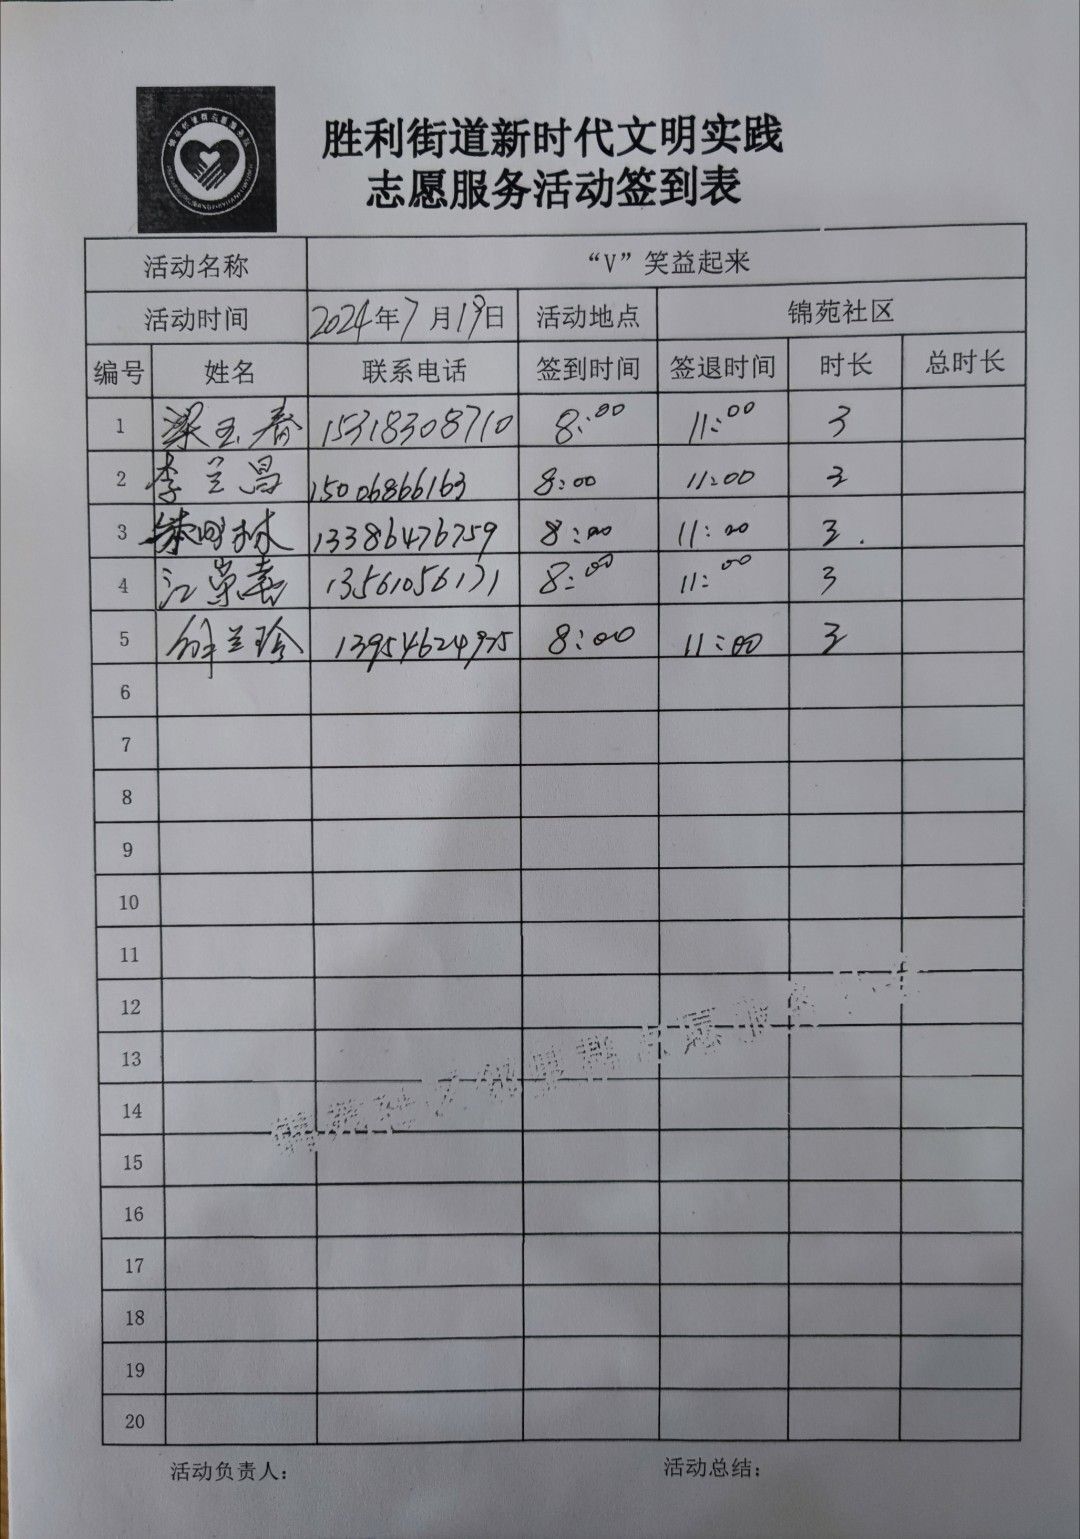 胜利街道新时代文明实践
志愿服务活动签到表
活动名称 “V”笑益起来
活动时间 2024年7月19日 活动地点 锦苑社区
编号 姓名 联系电话 签到时间 签退时间 时长 总时长
1 梁玉春 15318308710 8:00 11:00 3
2 李兰昌 15006866163 8:00 11:00 3
3 林 13386476759 8:00 11:00 3
4 江 13561056171 8:00 11:00 3
5 兰珍 13954624975 8:00 11:00 3
6
7
8
9
10
11
12
13
14
15
16
17
18
19
20
活动负责人： 活动总结：